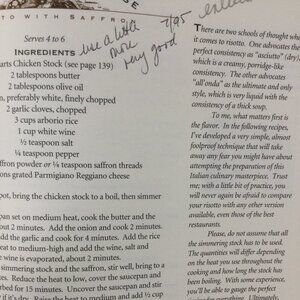 TO WITH SAFFRO
Serves 4 to 6
7/95
use a little
more
very good
INGREDIENTS
arts Chicken Stock (see page 139)
2 tablespoons butter
2 tablespoons olive oil
n, preferably white, finely chopped
2 garlic cloves, chopped
3 cups arborio rice
1 cup white wine
½ teaspoon salt
¼ teaspoon pepper
saffron powder or ¼ teaspoon saffron threads
ons grated Parmigiano Reggiano cheese
pot, bring the chicken stock to a boil, then simmer
pan set on medium heat, cook the butter and the
about 2 minutes. Add the onion and cook 2 minutes
add the garlic and cook for 4 minutes. Add the rice
eat to medium-high and add the wine, salt and
e wine is evaporated, about 2 minutes.
simmering stock and the saffron, stir well, bring to a
utes. Reduce the heat to low, cover the saucepan and
sturbed for 15 minutes. Uncover the saucepan and stir
if it's dry. Raise the heat to medium and add ½ cup
There are two schools of thought whe
it comes to risotto. One advocates the
perfect consistency as "asciutto" (dry),
which is a creamy, porridge-like
consistency. The other advocates
"all'onda" as the ultimate and only
style, which is very liquid with the
consistency of a thick soup.
To me, what matters first is
the flavor. In the following recipes,
I've developed a very simple, almost
foolproof technique that will take
away any fear you might have about
attempting the preparation of this
Italian culinary masterpiece. Trust
me; with a little bit of practice, you
will never again be afraid to compare
your risotto with any other version
available, even those of the best
restaurants.
Please, do not assume that all
the simmering stock has to be used.
The quantities will differ depending
on the heat you use throughout the
cooking and how long the stock has
been boiling. With some experience,
you'll be able to gauge the perfect
Ultimately,